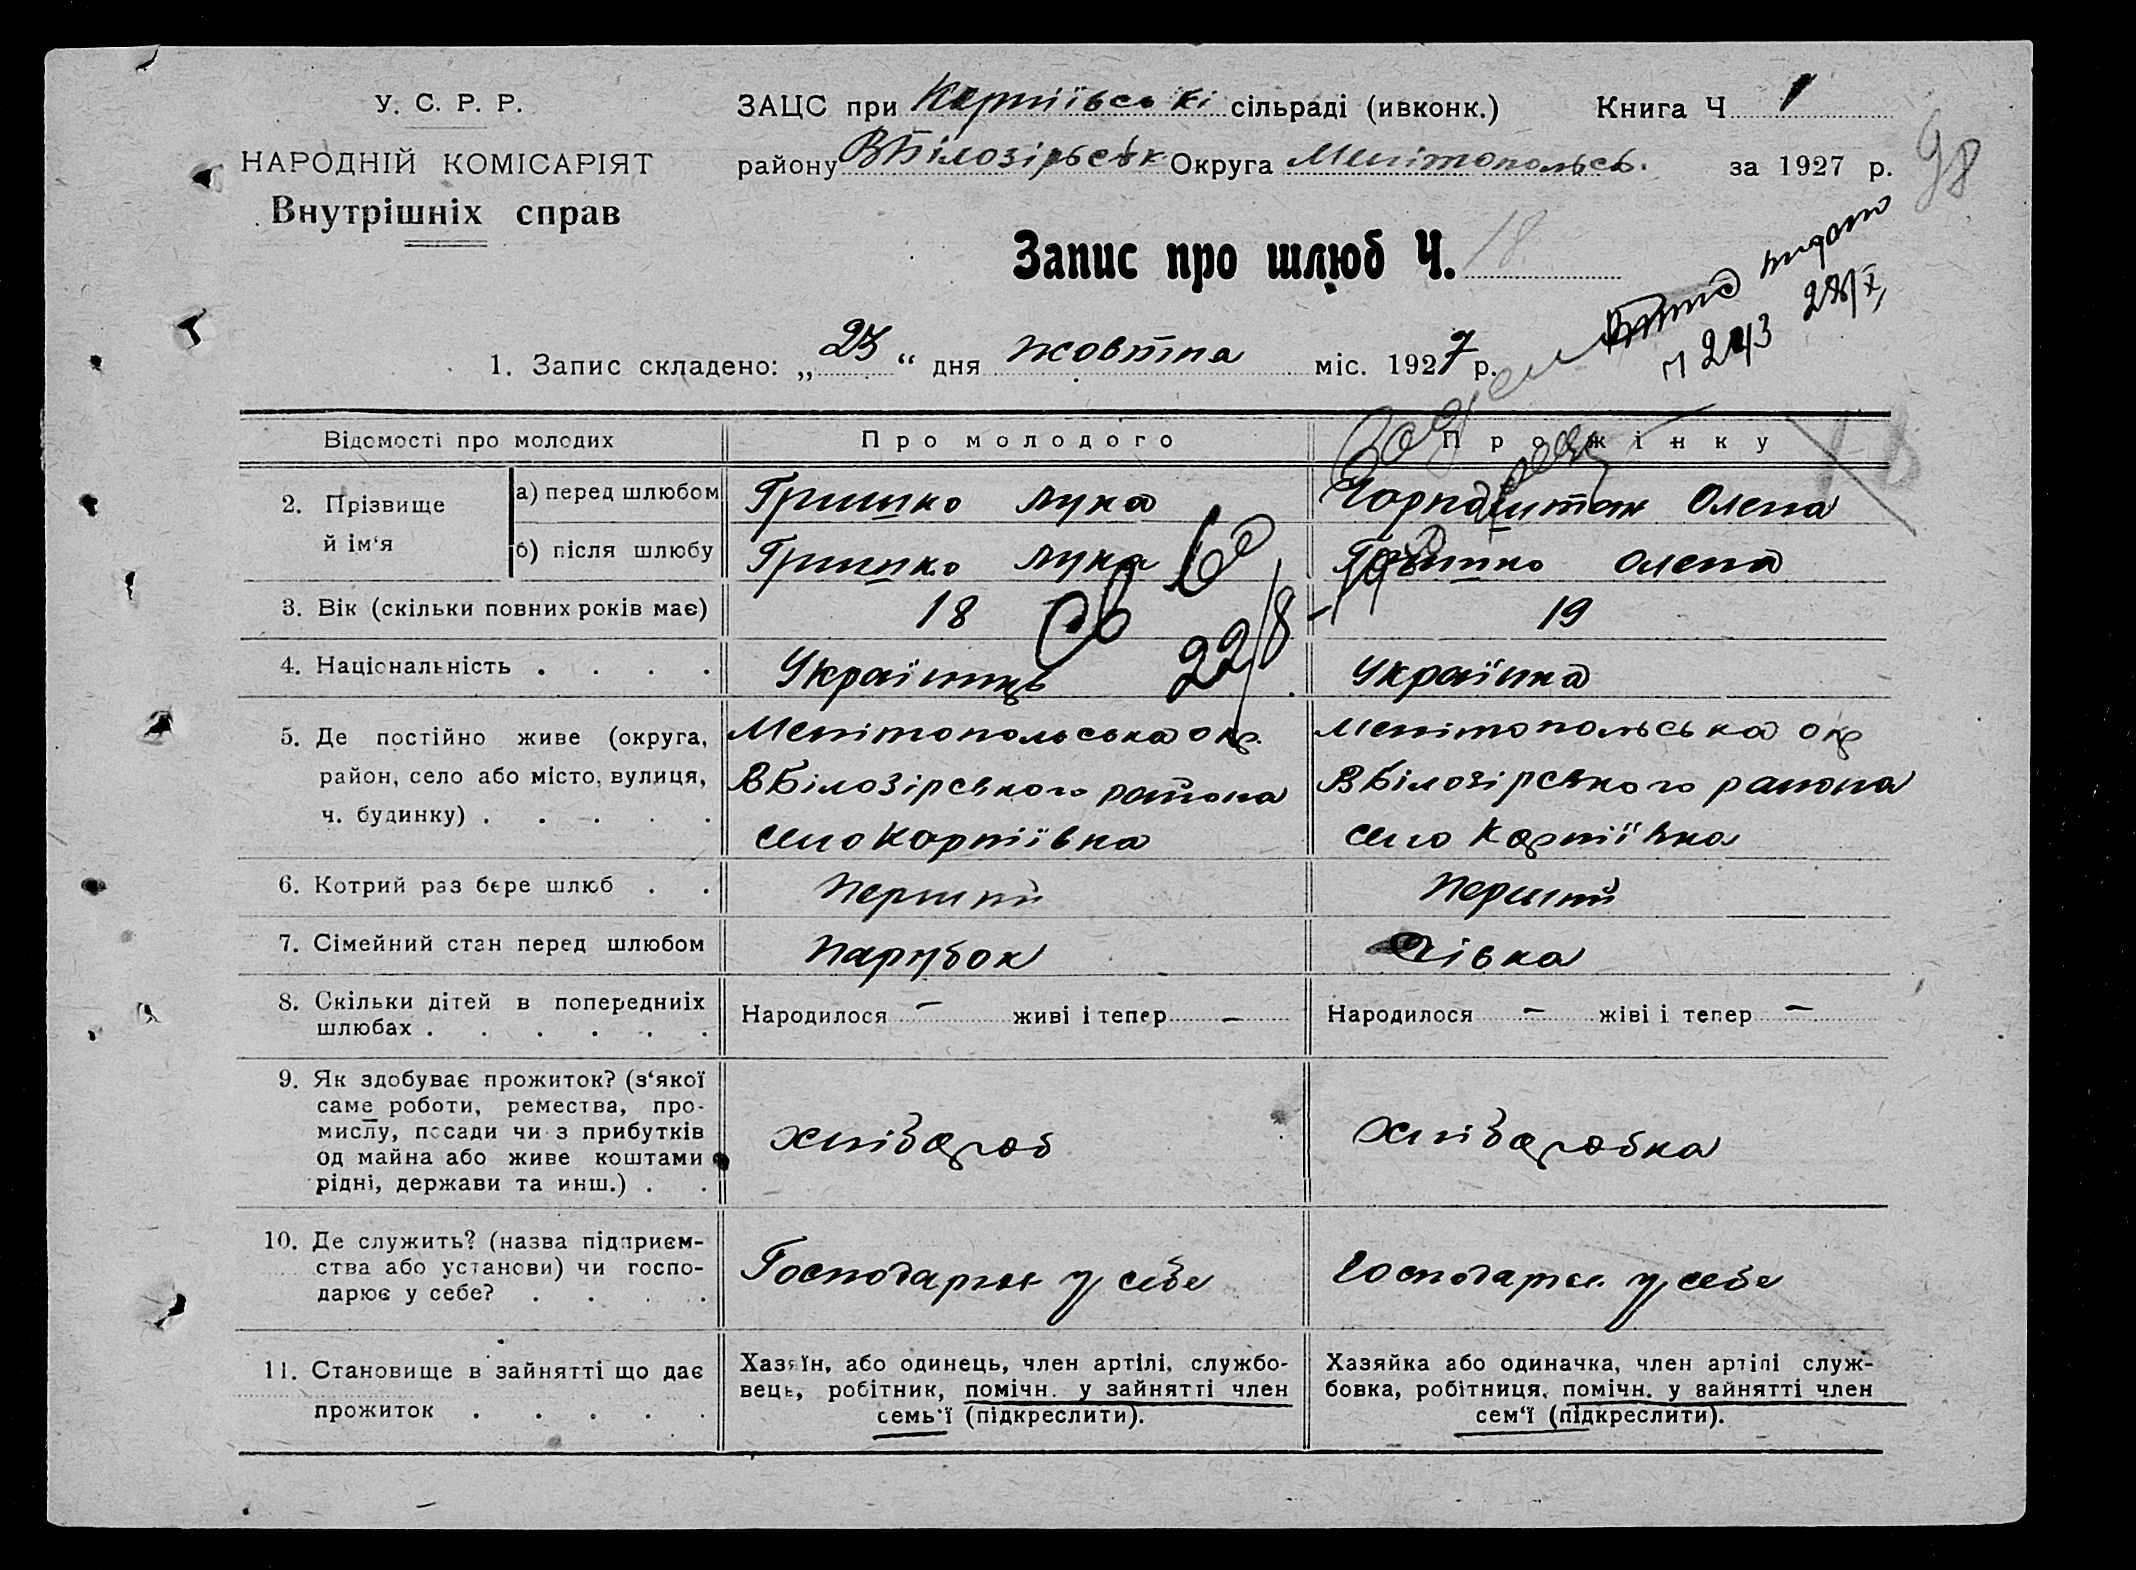 У. С. Р. Р.
НАРОДНІЙ КОМІСАРІЯТ
Внутрішніх справ
ЗАЦС при сільраді (ивконк.) Книга Ч 1
району ВБілозірськ Округа Мелітопольсь. за 1927 р.
98
Запис про шлюб Ч. 18
видано
28/X
1. Запис складено: „ “ дня жовтня міс. 1927 р.
Відомості про молодих Про молодого Про жінку
2. Прізвище й ім‘я
а) перед шлюбом Гришко Лука Олена
б) після шлюбу Гришко Лука Гришко Олена
22/8
3. Вік (скільки повних років має) 18 19
4. Національність . . . . Українець Українка
5. Де постійно живе (округа, Мелітопольська окр. Мелітопольська окр
район, село або місто, вулиця, ВБілозірського района ВБілозірського района
ч. будинку) . . . . . село село
6. Котрий раз бере шлюб . . Перший Перший
7. Сімейний стан перед шлюбом Парубок Дівка
8. Скільки дітей в попередниіх Народилося – живі і тепер – Народилося – жіві і тепер –
шлюбах . . . . . .
9. Як здобуває прожиток? (з‘якої
саме роботи, ремества, про-
мислу, посади чи з прибутків хлібороб хлібаробка
од майна або живе коштами
рідні, держави та инш.) . .
10. Де служить? (назва підприєм-
ства або установи) чи госпо- у себе у себе
дарює у себе? . . . .
11. Становище в зайнятті що дає Хазяїн, або одинець, член артілі, службо- Хазяйка або одиначка, член артілі служ-
вець, робітник, помічн. у зайнятті член бовка, робітниця, помічн. у зайнятті член
прожиток . . . . . семь‘ї (підкреслити). сем‘ї (підкреслити).